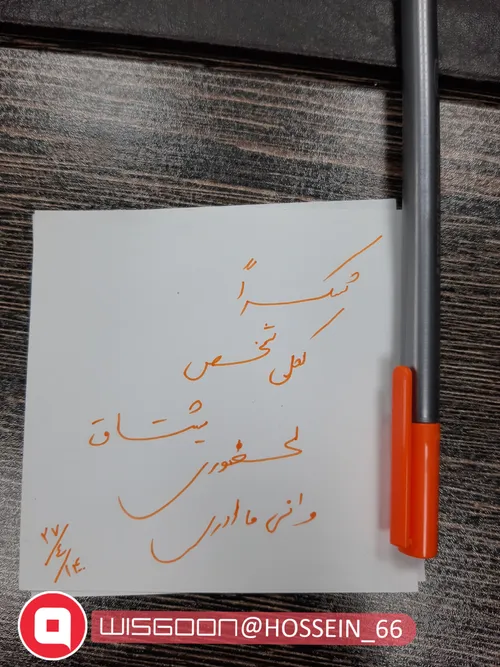 شكراً
لكل شخص
يشتاق
لحضوري
و انی ما ادری
۲۷/۴/۱۴
WISGOON@HOSSEIN_66